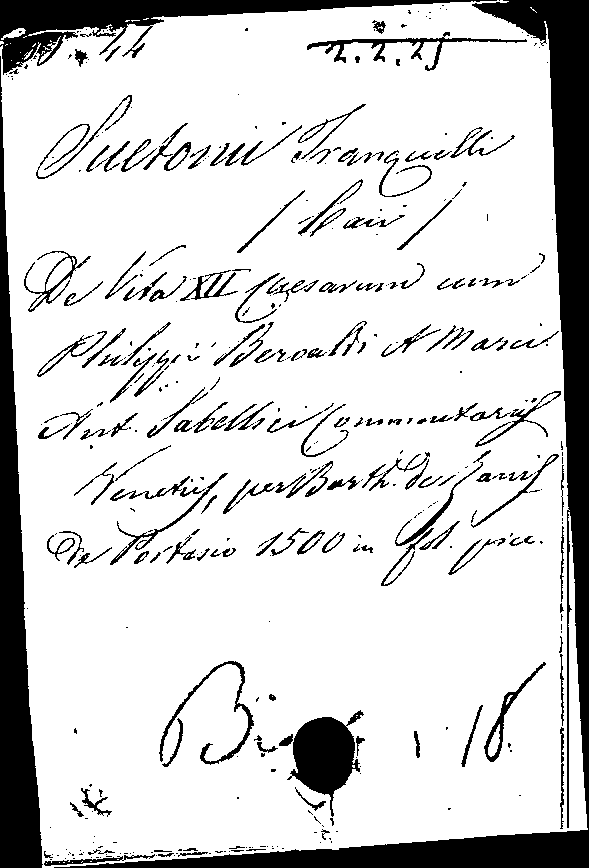 44 2.2.25
Suetonii Tranquilli
/ Caii /
De Vita XII Caesarum cum
Philippi Beroaldi et Marci
Ant. Sabellici Commentariis
Venetiis, per Barth. de Zanis
De Portesio 1500 in fol. picc.
18.